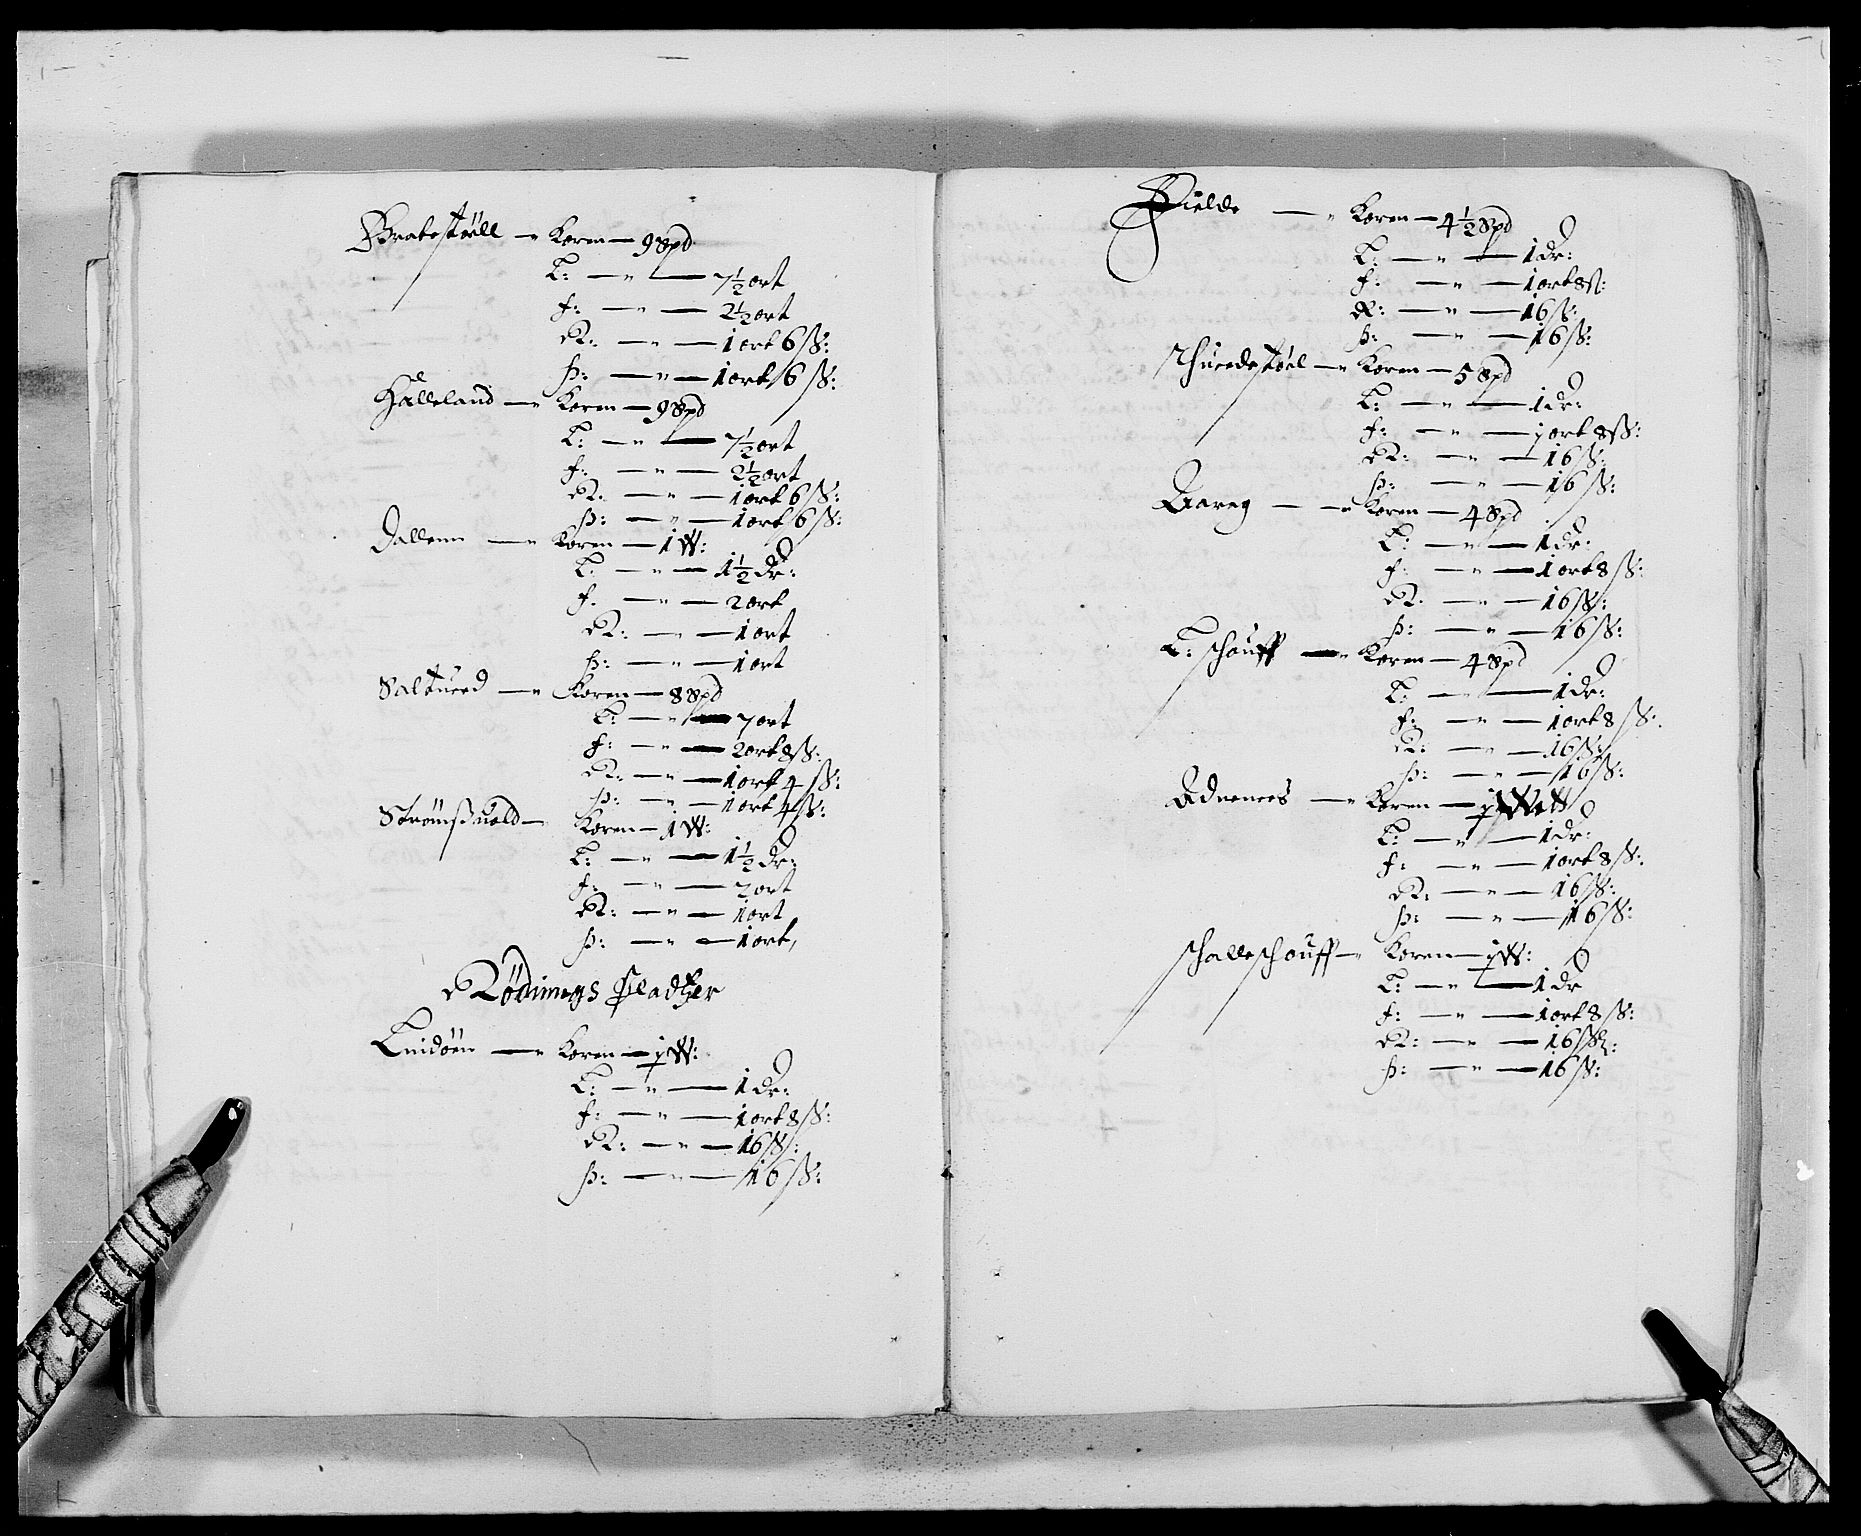 Bratestøell – " Koren – 9 Spd
L: – " – 7½ ort
f: – " – 2½ ort
R: – " – 1 ort 6 ß:
Þ: – " – 1 ort 6 ß:
Hålleland – " Koren – 9 Spd
L: – " – 7½ ort
f: – " – 2½ ort
R: – " – 1 ort 6 ß:
Þ: – " – 1 ort 6 ß:
Dallenn – " Koren – 1 W:
L: – " – 1½ dr:
f: – " – 2 ort
R: – " – 1 ort
Þ: – " – 1 ort
Saltueed – " Koren – 8 Spd
L: – " – 7 ort
f: – " – 2 ort 8 ß:
R: – " – 1 ort 4 ß:
Þ: – " – 1 ort 4 ß:
Strømßuold – Koren – 1 W:
L: – " – 1½ dr:
f: – " – 2 ort
R: – " – 1 ort
Þ: – " – 1 ort,
Rødnings Pladtzer
Lindøen – " Koren – 1 W:
L: – " – 1 dr:
f: – " – 1 ort 8 ß:
R: – " – 16 ß:
Þ: – " – 16 ß:
Fielde – " Koren – 4½ Spd
L: – " – 1 dr:
f: – " – 1 ort 8 ß:
R: – " – 16 ß:
Þ: – " – 16 ß:
Thuedestøel – " Koren – 5 Spd
L: – " – 1 dr:
f: – " – 1 ort 8 ß:
R: – " – 16 ß:
Þ: – " – 16 ß:
Aareg – " Koren – 4 Spd
L: – " – 1 dr:
f: – " – 1 ort 8 ß:
R: – " – 16 ß:
Þ: – " – 16 ß:
L: schouff – " Koren – 4 Spd
L: – " – 1 dr:
f: – " – 1 ort 8 ß:
R: – " – 16 ß:
Þ: – " – 16 ß:
Adnenees – " Koren –
L: – " – 1 dr:
f: – " – 1 ort 8 ß:
R: – " – 16 ß:
Þ: – " – 16 ß:
schalleschouff – " Koren – 1 W:
L: – " – 1 dr
f: – " – 1 ort 8 ß:
R: – " – 16 ß:
Þ: – " – 16 ß: